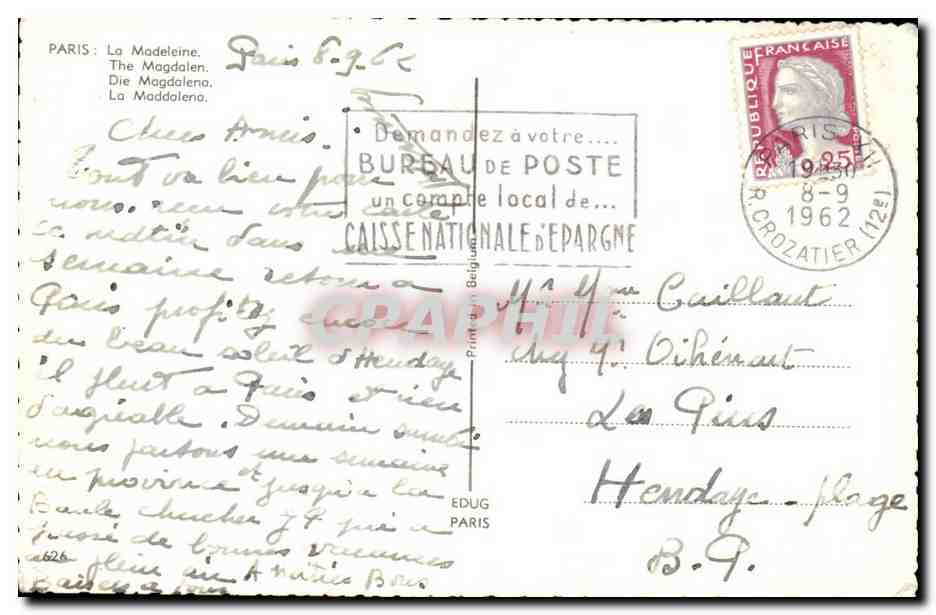 PARIS : La Madeleine.
The Magdalen.
Die Magdalena.
La Maddalena.
Paris 8-9-62
Chers Amis.
Tout va bien pour
nous. reçu votre carte
ce matin dans une
semaine retour a
Paris profitez encore
du beau soleil d'Hendaye
il pleut a Paris et rien
d'agréable. Demain
nous partons une semaine
en province et jusqu'a la
Baule chercher J P qui a
passé de bonnes vacances
au plein air
Baisers a tous
626
Demandez à votre....
BUREAU DE POSTE
un compte local de...
CAISSE NATIONALE D'EPARGNE
Printed in Belgium
EDUG
PARIS
REPUBLIQUE FRANÇAISE
0,25
PARIS
19 30
8-9
1962
R. CROZATIER (12e)
CPAPHIL
Mr Mme Caillaut
chez Mr Oihénart
Les Pins
Hendaye - plage
B. P.